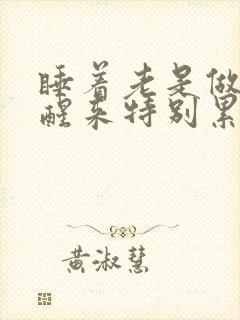 睡着老是做
醒来特别累
黄淑慧